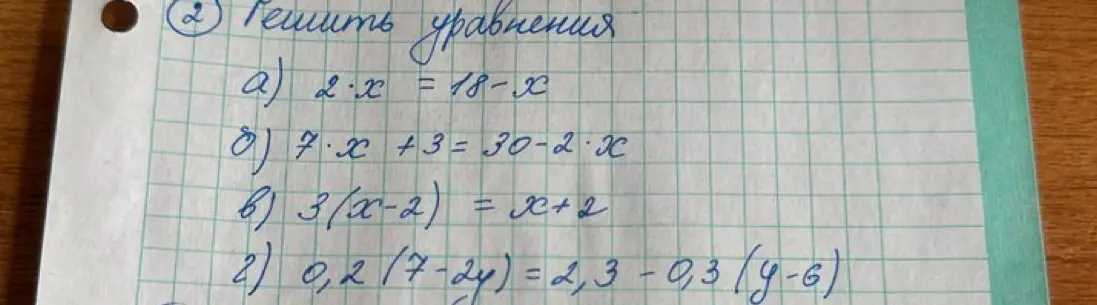 2 Решить уравнения
а) 2·x = 18-x
б) 7·x +3= 30-2·x
в) 3(x-2) = x+2
г) 0,2(7-2y)=2,3-0,3(y-6)